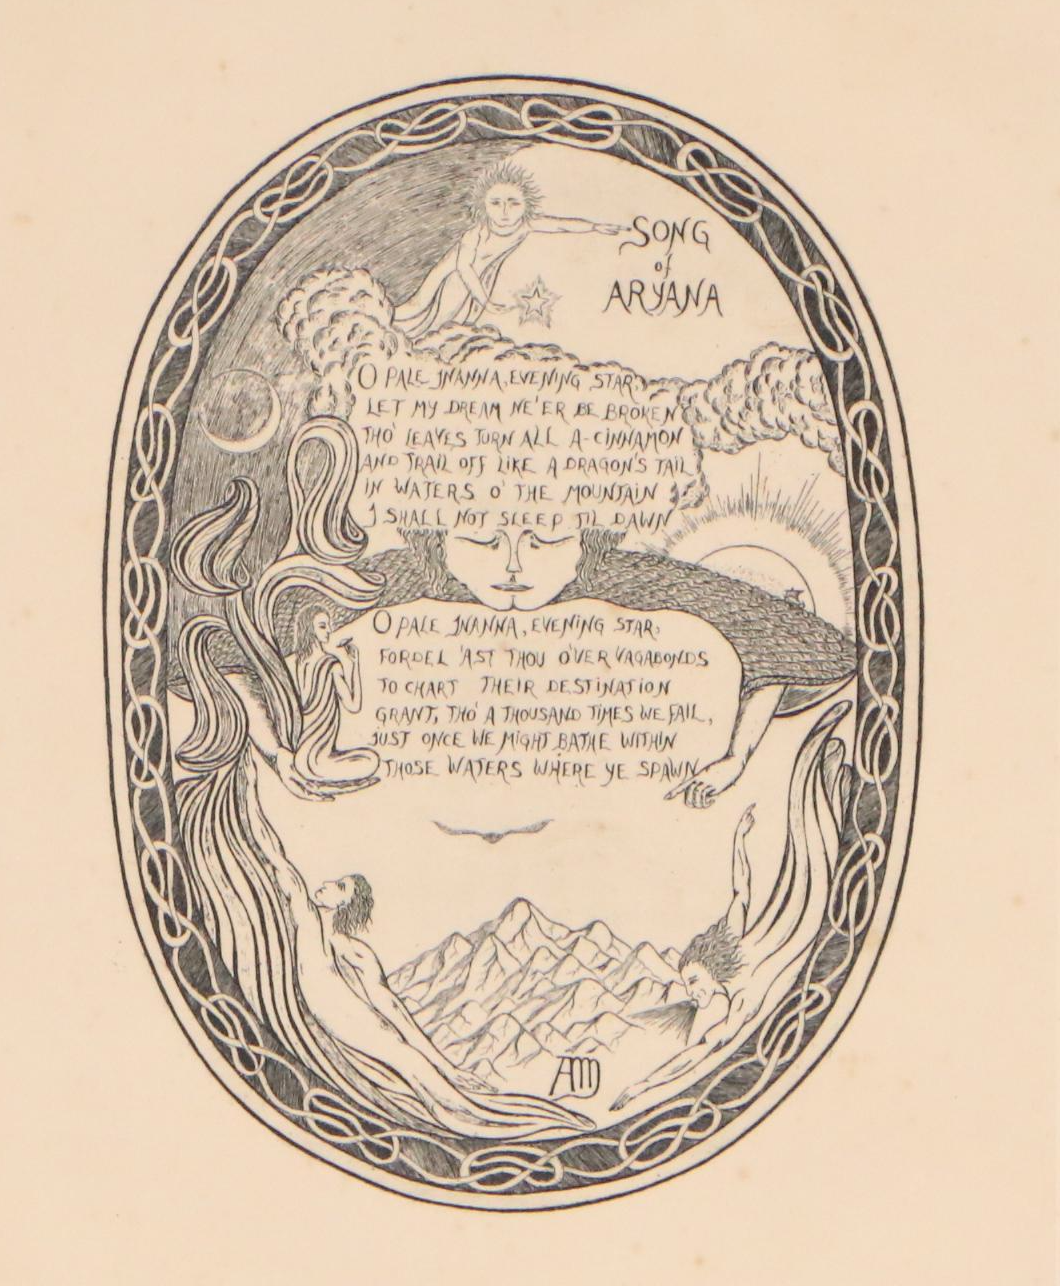 SONG
of
ARYANA
O PALE INANNA, EVENING STAR,
LET MY DREAM NE'ER BE BROKEN
THO' LEAVES TURN ALL A-CINNAMON
AND TRAIL OFF LIKE A DRAGON'S TAIL
IN WATERS O' THE MOUNTAIN
I SHALL NOT SLEEP TIL DAWN
O PALE INANNA, EVENING STAR,
FORDEL 'AST THOU O'VER VAGABONDS
TO CHART THEIR DESTINATION
GRANT, THO' A THOUSAND TIMES WE FAIL,
JUST ONCE WE MIGHT BATHE WITHIN
THOSE WATERS WHERE YE SPAWN
AM